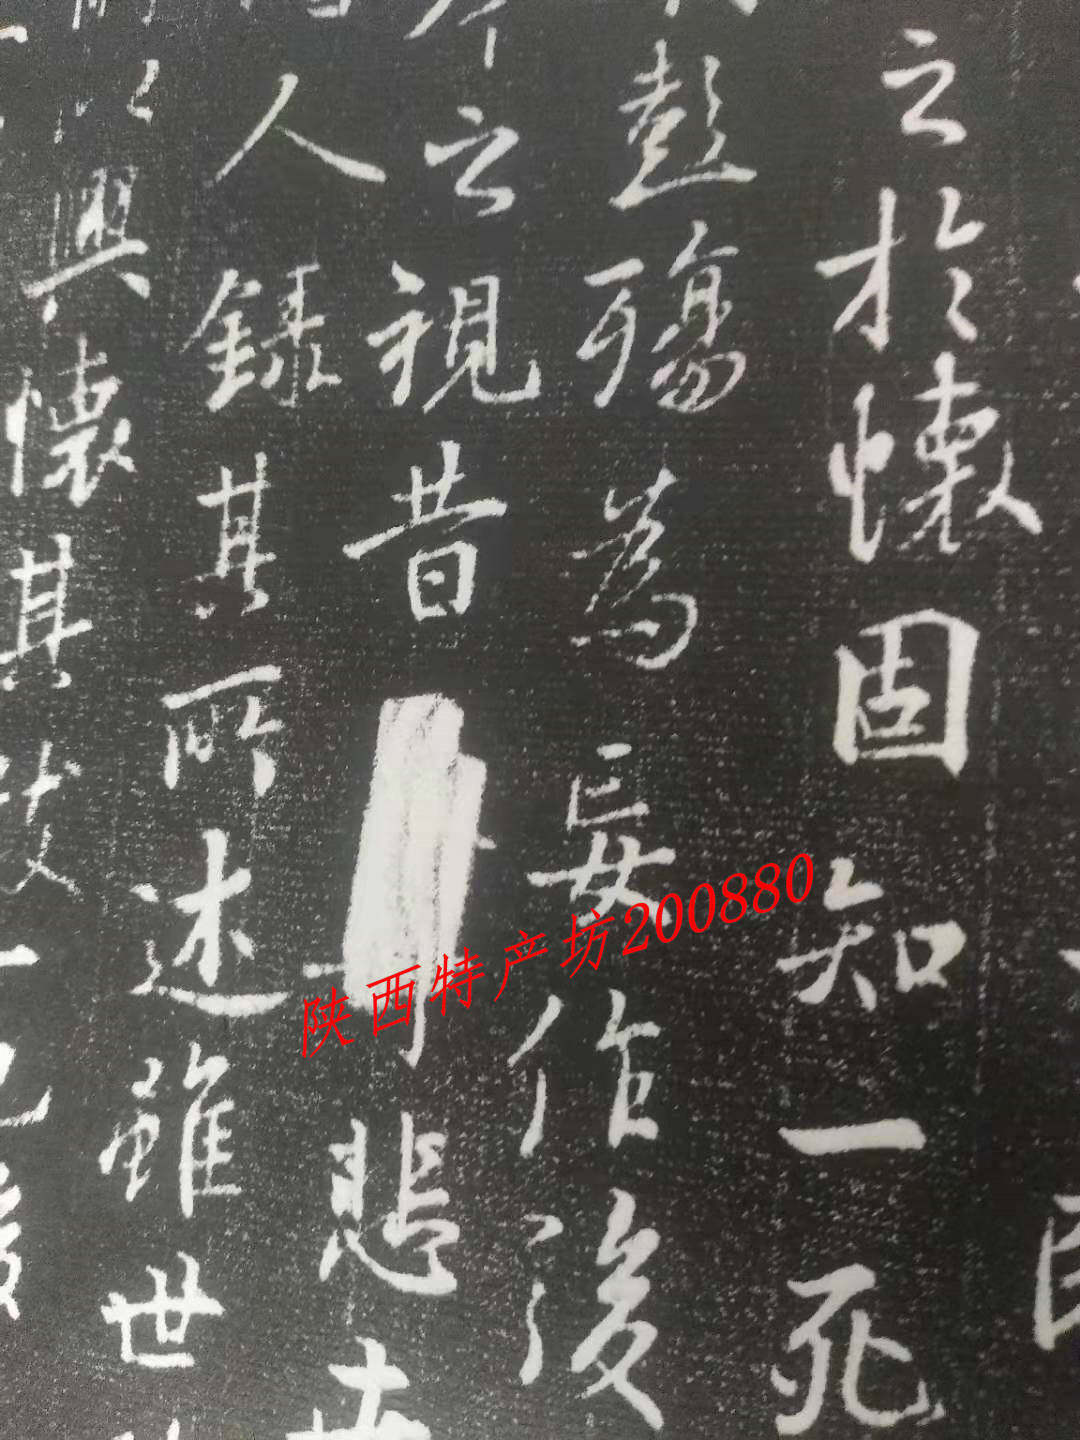 之於懷固知一死
彭殤為妄作後
之視昔
悲
人錄其所述雖世
興懷其致一也
陕西特产坊200880